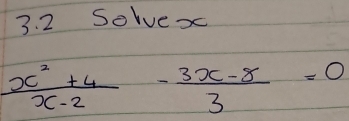 3.2 Solve x
(x² + 4)/(x - 2) - (3x - 8)/3 = 0